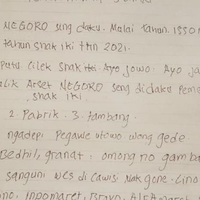 NEGORO sing diaku. Mulai tahun 1880
tahun shak iki thn 2021.
Putu cilek shak iki Ayo Jowo. Ayo Ja
alik Aset NEGORO seng didaku Pem
shak iki.
2 Pabrik - 3. tambang.
ngadepi Pegawe utowo wong gede
Bedhil, granat. omong no gamba
sanguni wes di cawisi nak gone. Lino
Indomaret, Bravo, Alfamaret